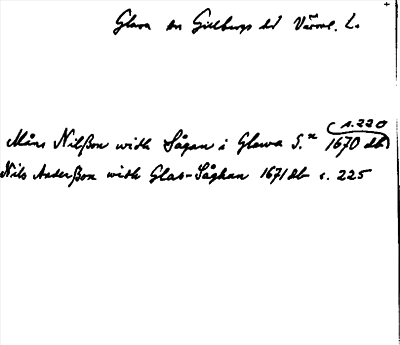 Glava sn Gillbergs hd Värml. L.
s. 220
Måns Nilßon widh Sågan i Glawa S.n 1670 db
Nils Anderßon widh Glas-Såghan 1671 db s. 225